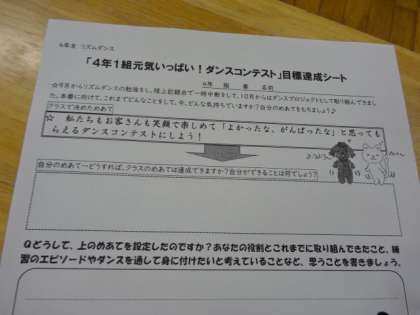 4年生 リズムダンス
「4年1組元気いっぱい！ダンスコンテスト」目標達成シート
4年 組 番 名前
☆今月からリズムダンスの勉強をし、陸上記録会で一時中断をして、10月からはダンスプロジェクトとして取り組んできまし
た。本番に向けて、これまでどんなことをして、今、どんな気持ちていますか？自分のめあてをもちましょう♪
クラスで決めためあて
☆ 私たちもお客さんも笑顔で楽しめて「よかったな、がんばったな」と思っても
らえるダンスコンテストにしよう！
自分のめあて―どうすれば、クラスのめあては達成できますか？自分ができることは何でしょう？
Qどうして、上のめあてを設定したのですか？あなたの役割とこれまでに取り組んできたこと、練
習のエピソードやダンスを通して身に付けたいと考えていることなど、思うことを書きましょう。